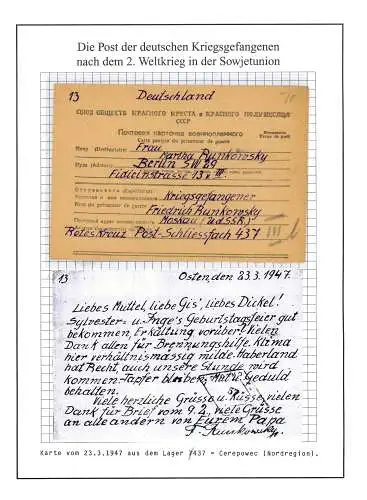 Die Post der deutschen Kriegsgefangenen
nach dem 2. Weltkrieg in der Sowjetunion
13 Deutschland
СОЮЗ ОБЩЕСТВ КРАСНОГО КРЕСТА и КРАСНОГО ПОЛУМЕСЯЦА
СССР
Почтовая карточка военнопленного
Carte postale du prisonnier de guerre
Кому (Destinataire) Frau
Martha Runkowsky
Куда (Adresse) Berlin SW 29
Fidicinstrasse 13 III.
Отправитель (Expéditeur)
Kriegsgefangener
Friedrich Runkowsky
Moskau (UdSSR)
Rotes Kreuz Post-Schliessfach 437
13 Osten, den 23.3.1947.
Liebes Muttel, liebe Gis', liebes Dickel!
Sylvester- u. Inge's Geburtstagsfeier gut
bekommen, Erkältung vorüber! Vielen
Dank allen für Brennungshilfe. Klima
hier verhältnismässig milde. Haberland
hat Recht, auch unsere Stunde wird
kommen. Tapfer bleiben, Mut u. Geduld
behalten.
Viele herzliche Grüsse u. Küsse, vielen
Dank für Brief vom 9.2, viele Grüsse
an alle andern von Eurem Papa
F. Runkowsky
Karte vom 23.3.1947 aus dem Lager 7437 = Cerepowec (Nordregion).